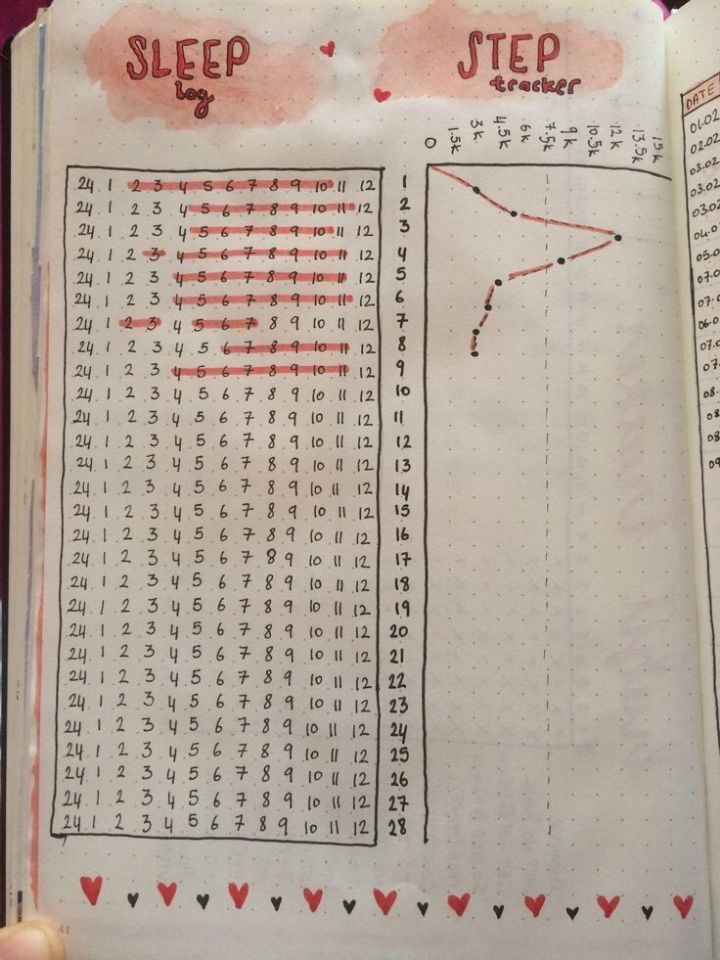 SLEEP
log
STEP
tracker
DATE
0 1.5k 3k 4.5k 6k 7.5k 9k 10.5k 12k 13.5k 15k
24 1 2 3 4 5 6 7 8 9 10 11 12 1
24 1 2 3 4 5 6 7 8 9 10 11 12 2
24 1 2 3 4 5 6 7 8 9 10 11 12 3
24 1 2 3 4 5 6 7 8 9 10 11 12 4
24 1 2 3 4 5 6 7 8 9 10 11 12 5
24 1 2 3 4 5 6 7 8 9 10 11 12 6
24 1 2 3 4 5 6 7 8 9 10 11 12 7
24 1 2 3 4 5 6 7 8 9 10 11 12 8
24 1 2 3 4 5 6 7 8 9 10 11 12 9
24 1 2 3 4 5 6 7 8 9 10 11 12 10
24 1 2 3 4 5 6 7 8 9 10 11 12 11
24 1 2 3 4 5 6 7 8 9 10 11 12 12
24 1 2 3 4 5 6 7 8 9 10 11 12 13
24 1 2 3 4 5 6 7 8 9 10 11 12 14
24 1 2 3 4 5 6 7 8 9 10 11 12 15
24 1 2 3 4 5 6 7 8 9 10 11 12 16
24 1 2 3 4 5 6 7 8 9 10 11 12 17
24 1 2 3 4 5 6 7 8 9 10 11 12 18
24 1 2 3 4 5 6 7 8 9 10 11 12 19
24 1 2 3 4 5 6 7 8 9 10 11 12 20
24 1 2 3 4 5 6 7 8 9 10 11 12 21
24 1 2 3 4 5 6 7 8 9 10 11 12 22
24 1 2 3 4 5 6 7 8 9 10 11 12 23
24 1 2 3 4 5 6 7 8 9 10 11 12 24
24 1 2 3 4 5 6 7 8 9 10 11 12 25
24 1 2 3 4 5 6 7 8 9 10 11 12 26
24 1 2 3 4 5 6 7 8 9 10 11 12 27
24 1 2 3 4 5 6 7 8 9 10 11 12 28
41
01.02
02.02
03.02
03.02
03.02